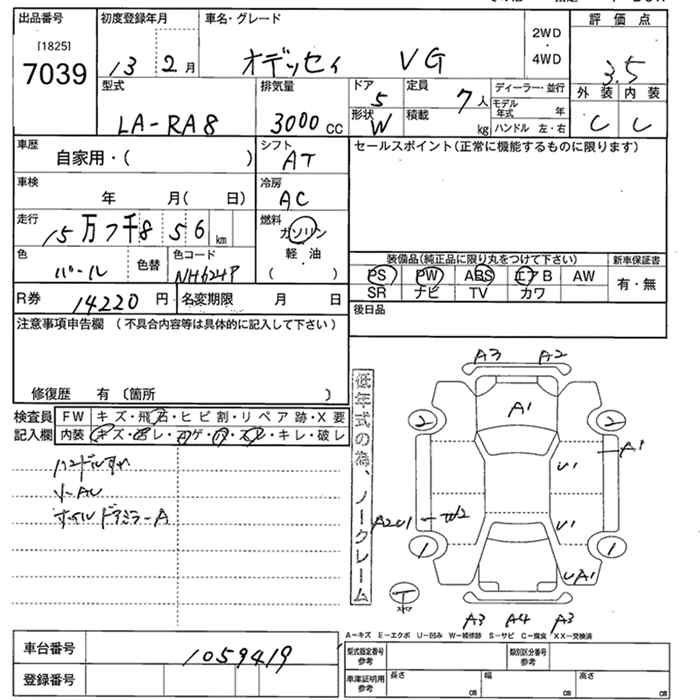 出品番号 初度登録年月 車名・グレード 評価点
[1825] 7039 13 2月 オデッセイ VG 2WD・4WD 3.5
型式 排気量 ドア 5 定員 7人 ディーラー・並行 外装 内装
LA-RA8 3000cc 形状 W 積載 kg モデル年式 年 ハンドル 左・右 C C
車歴 自家用・( ) シフト AT セールスポイント(正常に機能するものに限ります)
車検 年 月( 日) 冷房 AC
走行 15万7千856km 燃料 ガソリン
軽油
( )
色 パール 色替 色コード NH624P
装備品(純正品に限り丸をつけて下さい) 新車保証書
PS PW ABS エアB AW 有・無
SR ナビ TV カワ
R券 14220円 名変期限 月 日 後日品
注意事項申告欄 (不具合内容等は具体的に記入して下さい)
修復歴 有 〔箇所 〕
検査員 FW キズ・飛石・ヒビ割・リペア跡・X要
記入欄 内装 キズ・ヨゴレ・コゲ・ハ・スレ・キレ・破レ
低年式の為、ノークレーム
ハンドルすれ
小AU
ホイル ドアミラーA
A3 A2
A1
2 2
A1
U1
A2U1 W2 U1
1 1
UA1
T
A3 A4 A3
A-キズ E-エクボ U-凹み W-補修跡 S-サビ C-腐食 XX-交換済
車台番号 1059419
登録番号
型式指定番号 参考 類別区分番号 参考
車庫証明用 参考 長さ cm 幅 cm 高さ cm